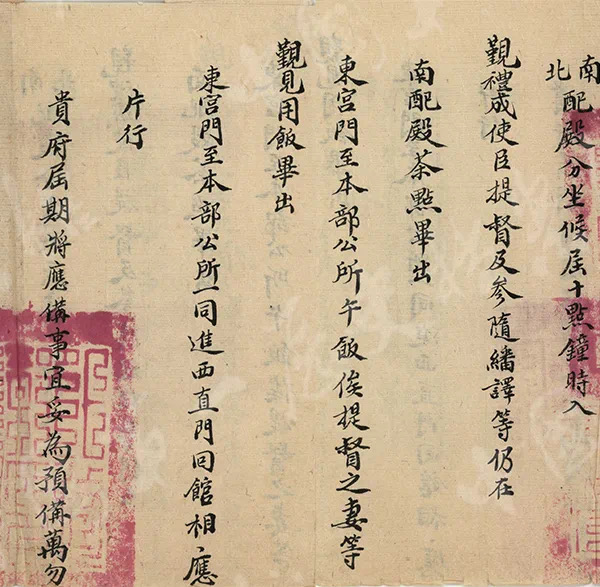 南北配殿分坐候屆十點鐘時入
覲禮成使臣提督及參隨繙譯等仍在
南配殿茶點畢出
東宮門至本部公所午飯俟提督之妻等
覲見用飯畢出
東宮門至本部公所一同進西直門回館相應
片行
貴府屆期將應備事宜妥為預備萬勿